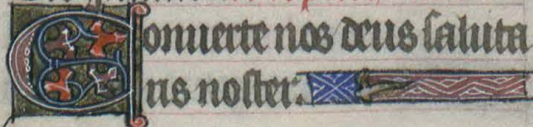 Conuerte nos deus saluta
ris noster.